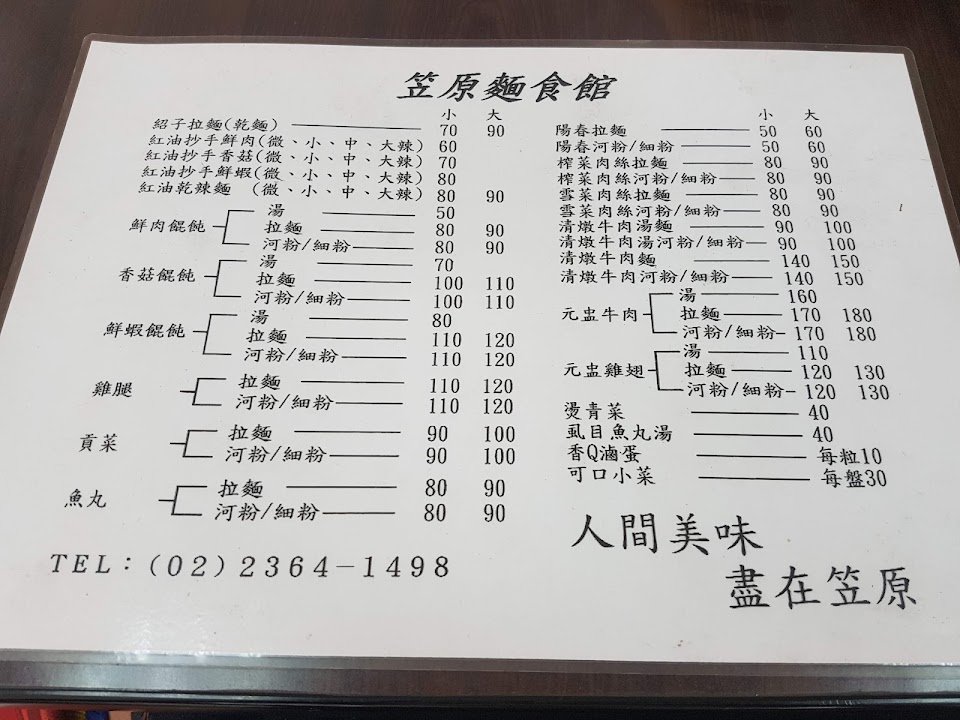 笠原麵食館
小 大
紹子拉麵(乾麵) 70 90
紅油抄手鮮肉(微、小、中、大辣) 60
紅油抄手香菇(微、小、中、大辣) 70
紅油抄手鮮蝦(微、小、中、大辣) 80
紅油乾辣麵 (微、小、中、大辣) 80 90
鮮肉餛飩
湯 50
拉麵 80 90
河粉/細粉 80 90
香菇餛飩
湯 70
拉麵 100 110
河粉/細粉 100 110
鮮蝦餛飩
湯 80
拉麵 110 120
河粉/細粉 110 120
雞腿
拉麵 110 120
河粉/細粉 110 120
貢菜
拉麵 90 100
河粉/細粉 90 100
魚丸
拉麵 80 90
河粉/細粉 80 90
TEL：(02)2364-1498
小 大
陽春拉麵 50 60
陽春河粉/細粉 50 60
榨菜肉絲拉麵 80 90
榨菜肉絲河粉/細粉 80 90
雪菜肉絲拉麵 80 90
雪菜肉絲河粉/細粉 80 90
清燉牛肉湯麵 90 100
清燉牛肉湯河粉/細粉 90 100
清燉牛肉麵 140 150
清燉牛肉河粉/細粉 140 150
元盅牛肉
湯 160
拉麵 170 180
河粉/細粉 170 180
元盅雞翅
湯 110
拉麵 120 130
河粉/細粉 120 130
燙青菜 40
虱目魚丸湯 40
香Q滷蛋 每粒10
可口小菜 每盤30
人間美味
盡在笠原